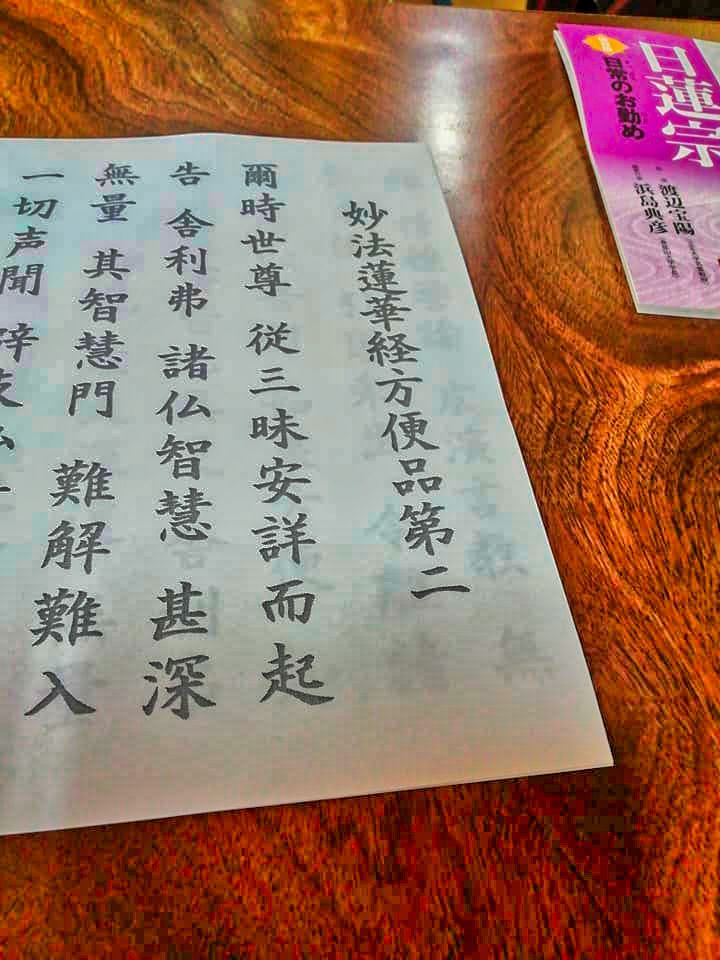 妙法蓮華経方便品第二
爾時世尊 従三昧安詳而起
告 舎利弗 諸仏智慧 甚深
無量 其智慧門 難解難入
一切声聞 辟支仏
日蓮宗
日常のお勤め
渡辺宝陽
浜島典彦